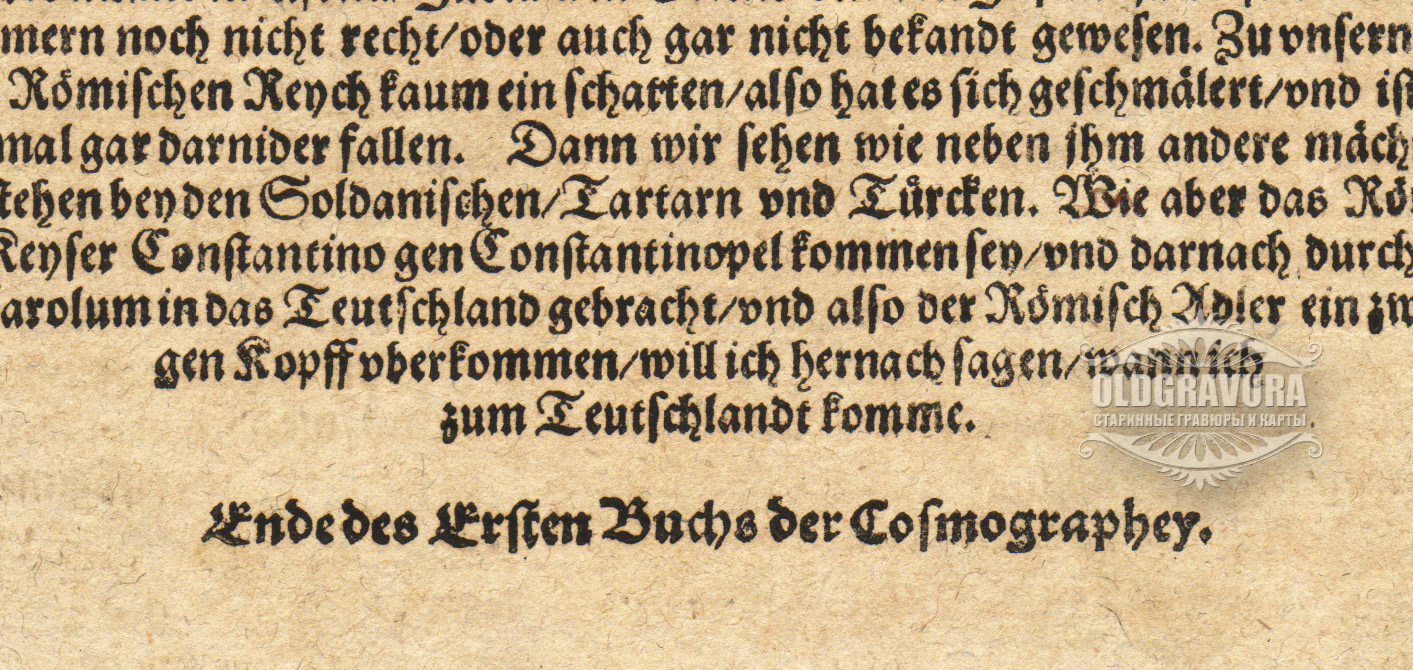 mern noch nicht recht/oder auch gar nicht bekandt gewesen. Zu vnsern
Römischen Reych kaum ein schatten/also hat es sich geschmälert/vnd ist
mal gar darnider fallen. Dann wir sehen wie neben jhm andere mäch
stehen bey den Soldanischen/Tartarn vnd Türcken. Wie aber das Rö
Keyser Constantino gen Constantinopel kommen sey/vnd darnach durch
arolum in das Teutschland gebracht/vnd also der Römisch Adler ein zw
gen Kopff vberkommen/will ich hernach sagen/wann ich
zum Teutschlandt komme.
OLDGRAVURA
СТАРИННЫЕ ГРАВЮРЫ И КАРТЫ
Ende des Ersten Buchs der Cosmographey.